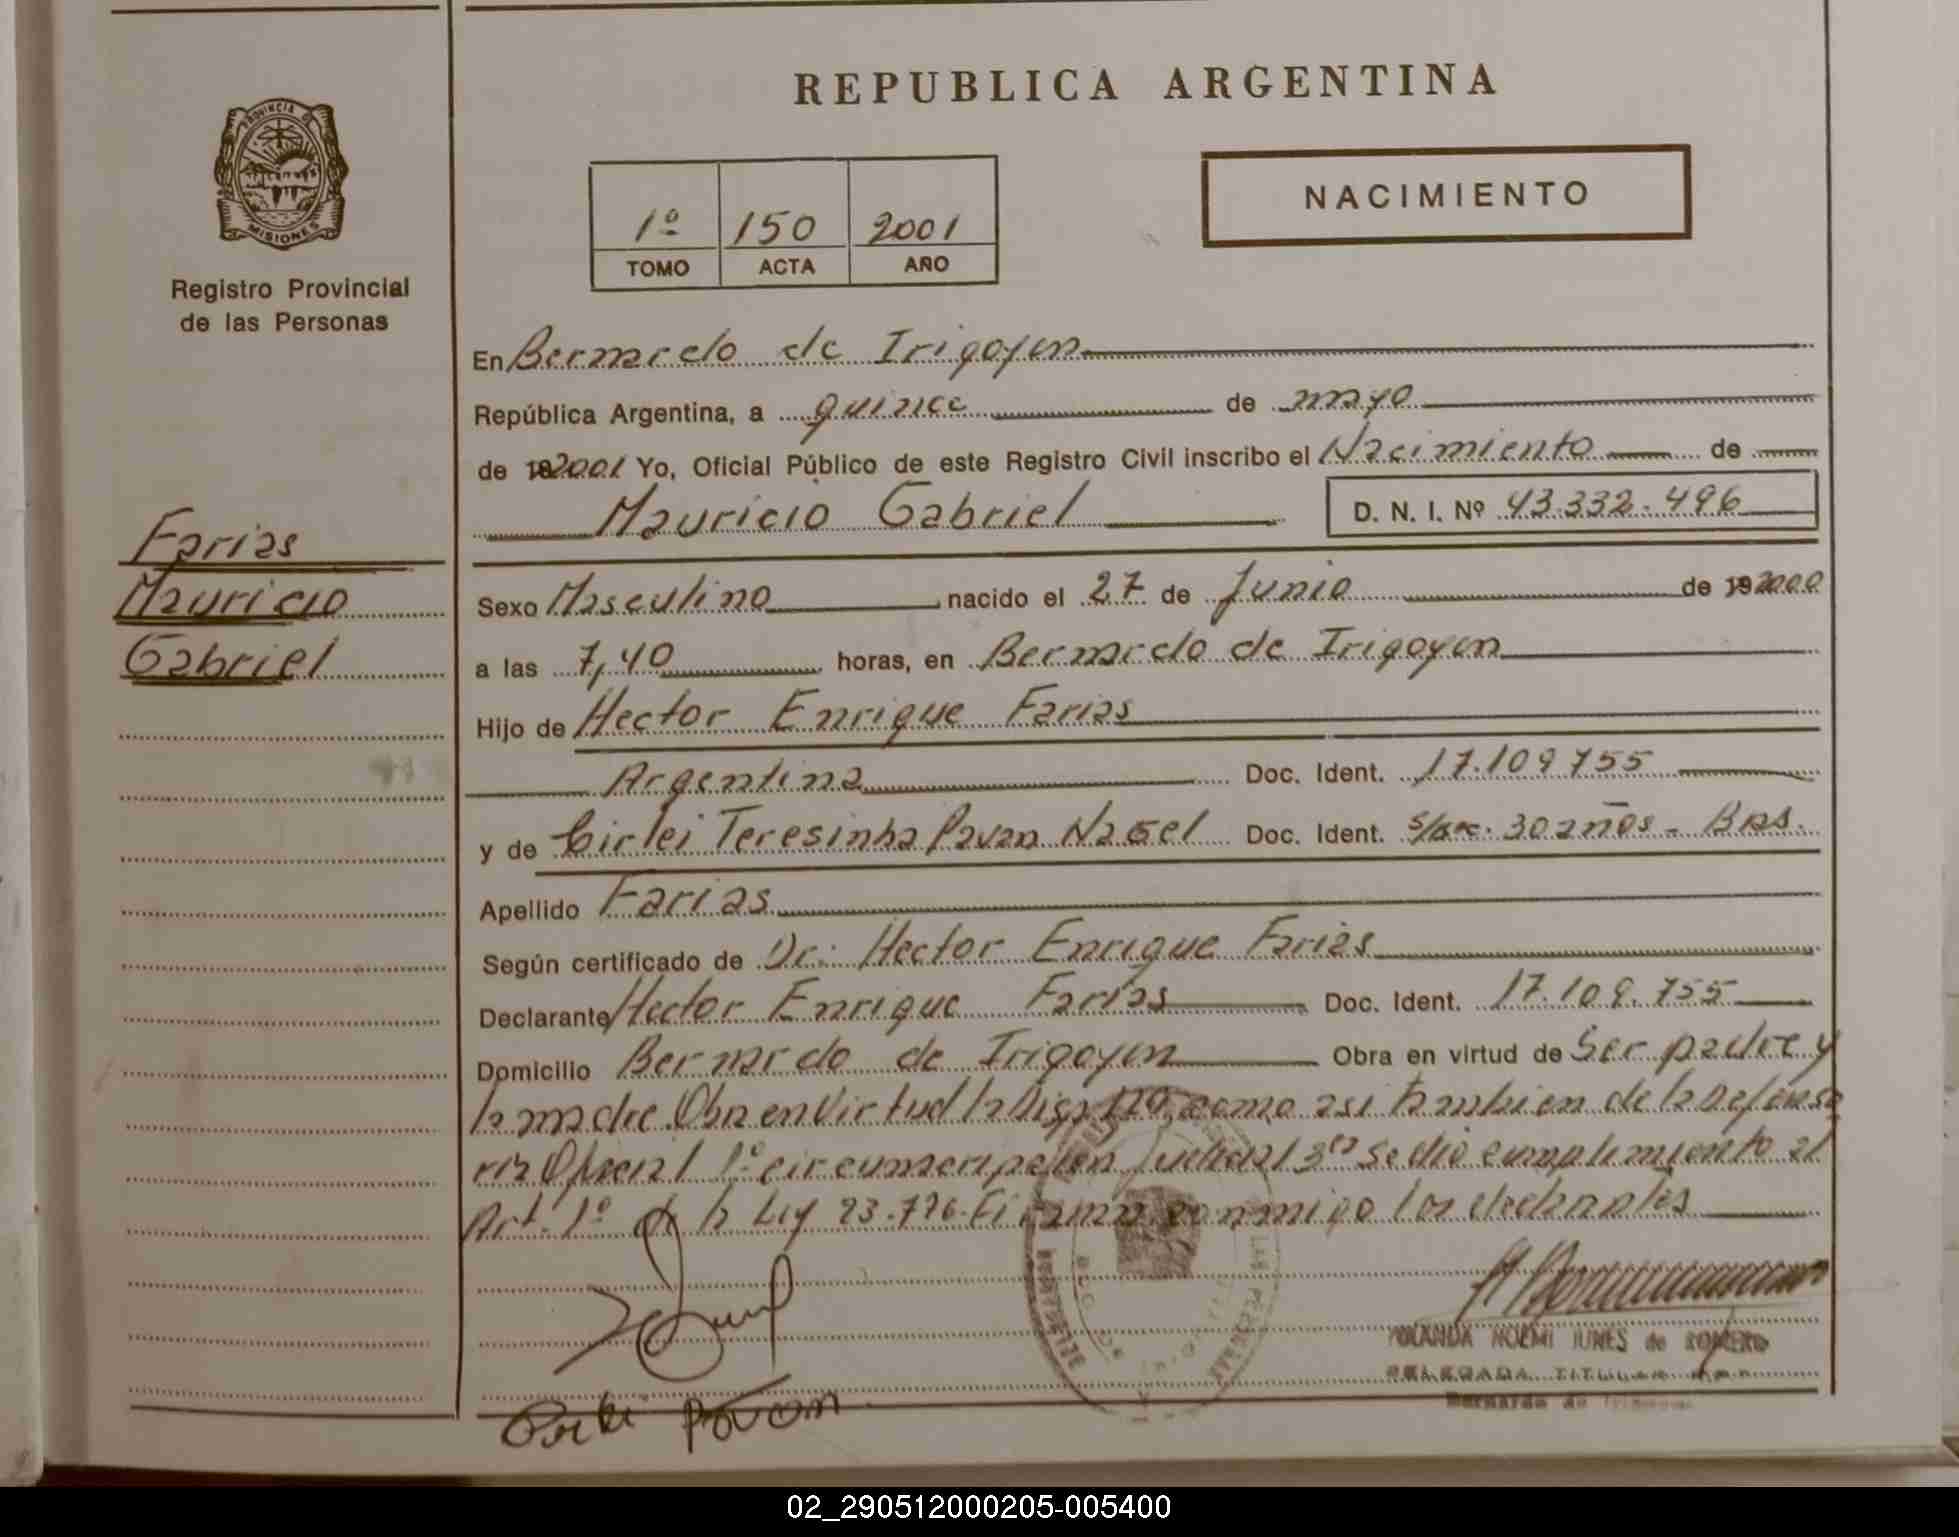 REPUBLICA ARGENTINA
PROVINCIA DE
MISIONES
Registro Provincial
de las Personas
NACIMIENTO
1º 150 2001
TOMO ACTA AÑO
En Bernardo de Irigoyen
República Argentina, a quince de mayo
de 192001 Yo, Oficial Público de este Registro Civil inscribo el Nacimiento de
Mauricio Gabriel D. N. I. Nº 43.332.496
Farias
Mauricio
Gabriel
Sexo Masculino nacido el 27 de Junio de 192000
a las 7,40 horas, en Bernardo de Irigoyen
Hijo de Hector Enrique Farias
Argentina Doc. Ident. 17.109.755
y de Cirlei Teresinha Pavan Nagel Doc. Ident. 30 años - Bras.
Apellido Farias
Según certificado de Dr: Hector Enrique Farias
Declarante Hector Enrique Farias Doc. Ident. 17.109.755
Domicilio Bernardo de Irigoyen Obra en virtud de Ser padre y
la madre. Obra en Virtud la como asi tambien de la Defenso
ria Oficial 1º circunscripcion Judicial 3ra se dio cumplimiento al
Art. 1º de la Ley 23.776. Firman conmigo los declarantes
YOLANDA NOEMI IUNES de ROMERO
DELEGADA TITULAR
Bernardo de Irigoyen
Pavan
02_290512000205-005400